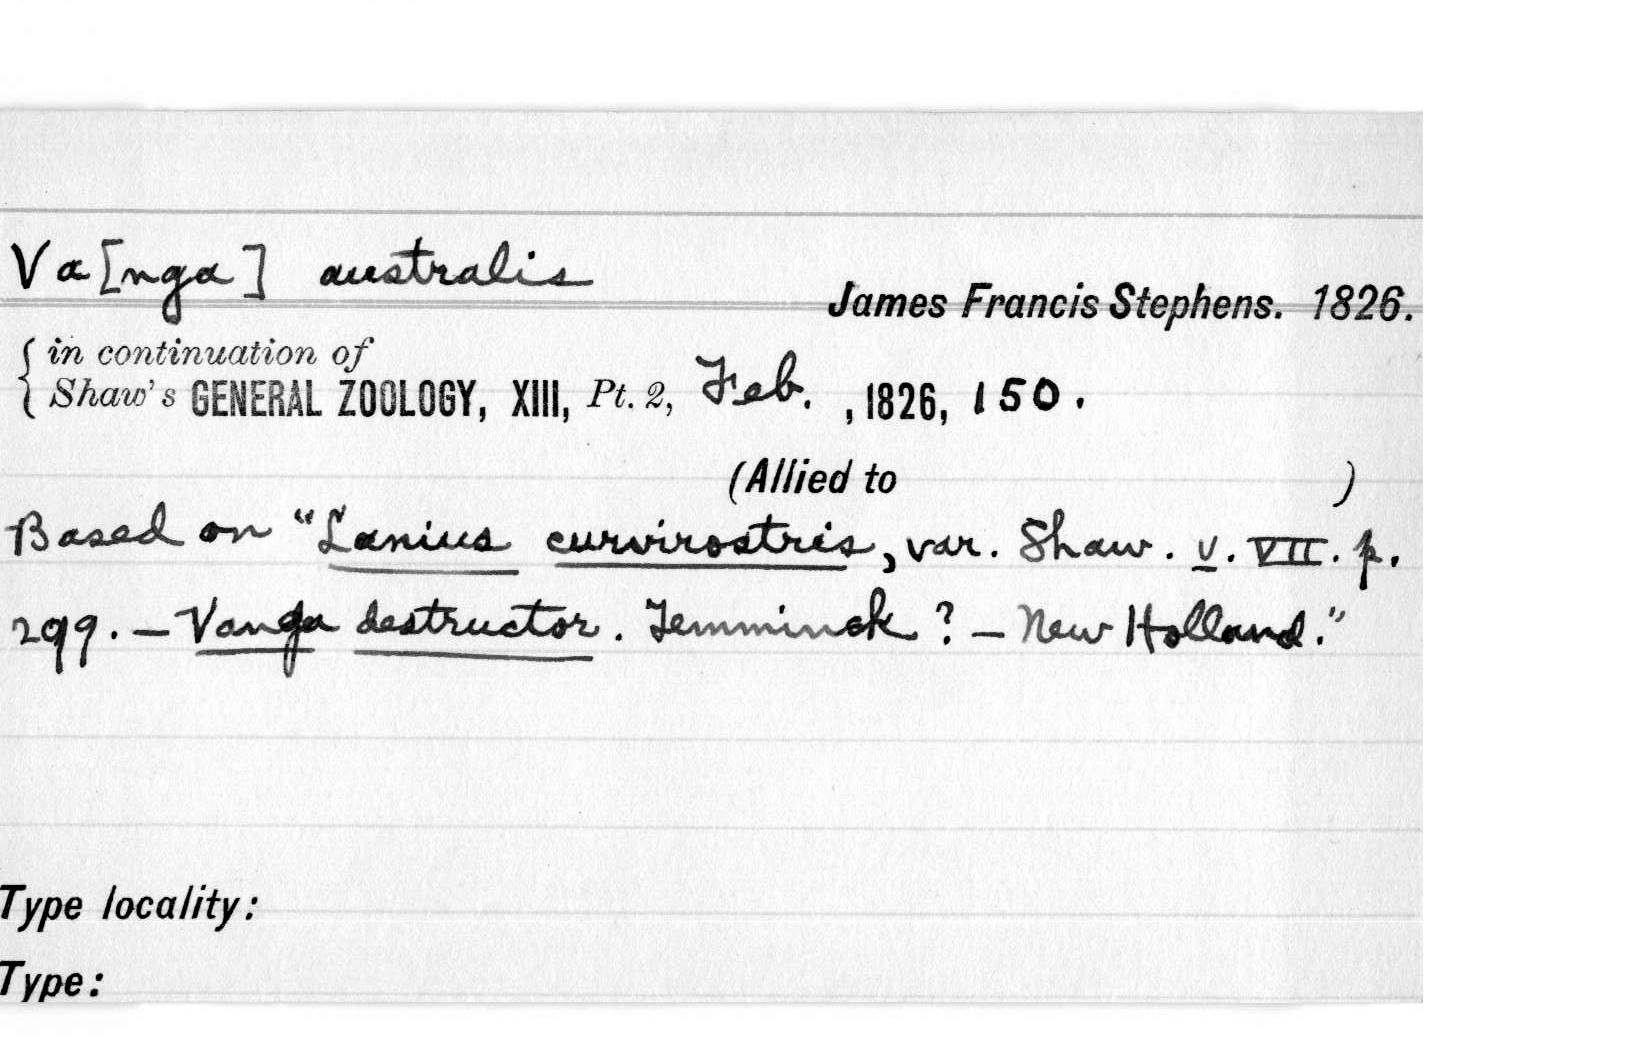 Va[nga] australis
James Francis Stephens. 1826.
in continuation of
Shaw's GENERAL ZOOLOGY, XIII, Pt. 2, Feb. , 1826, 150.
(Allied to )
Based on "Lanius curvirostris, var. Shaw. v. VII. p.
299. — Vanga destructor. Temminck ? — New Holland."
Type locality:
Type: